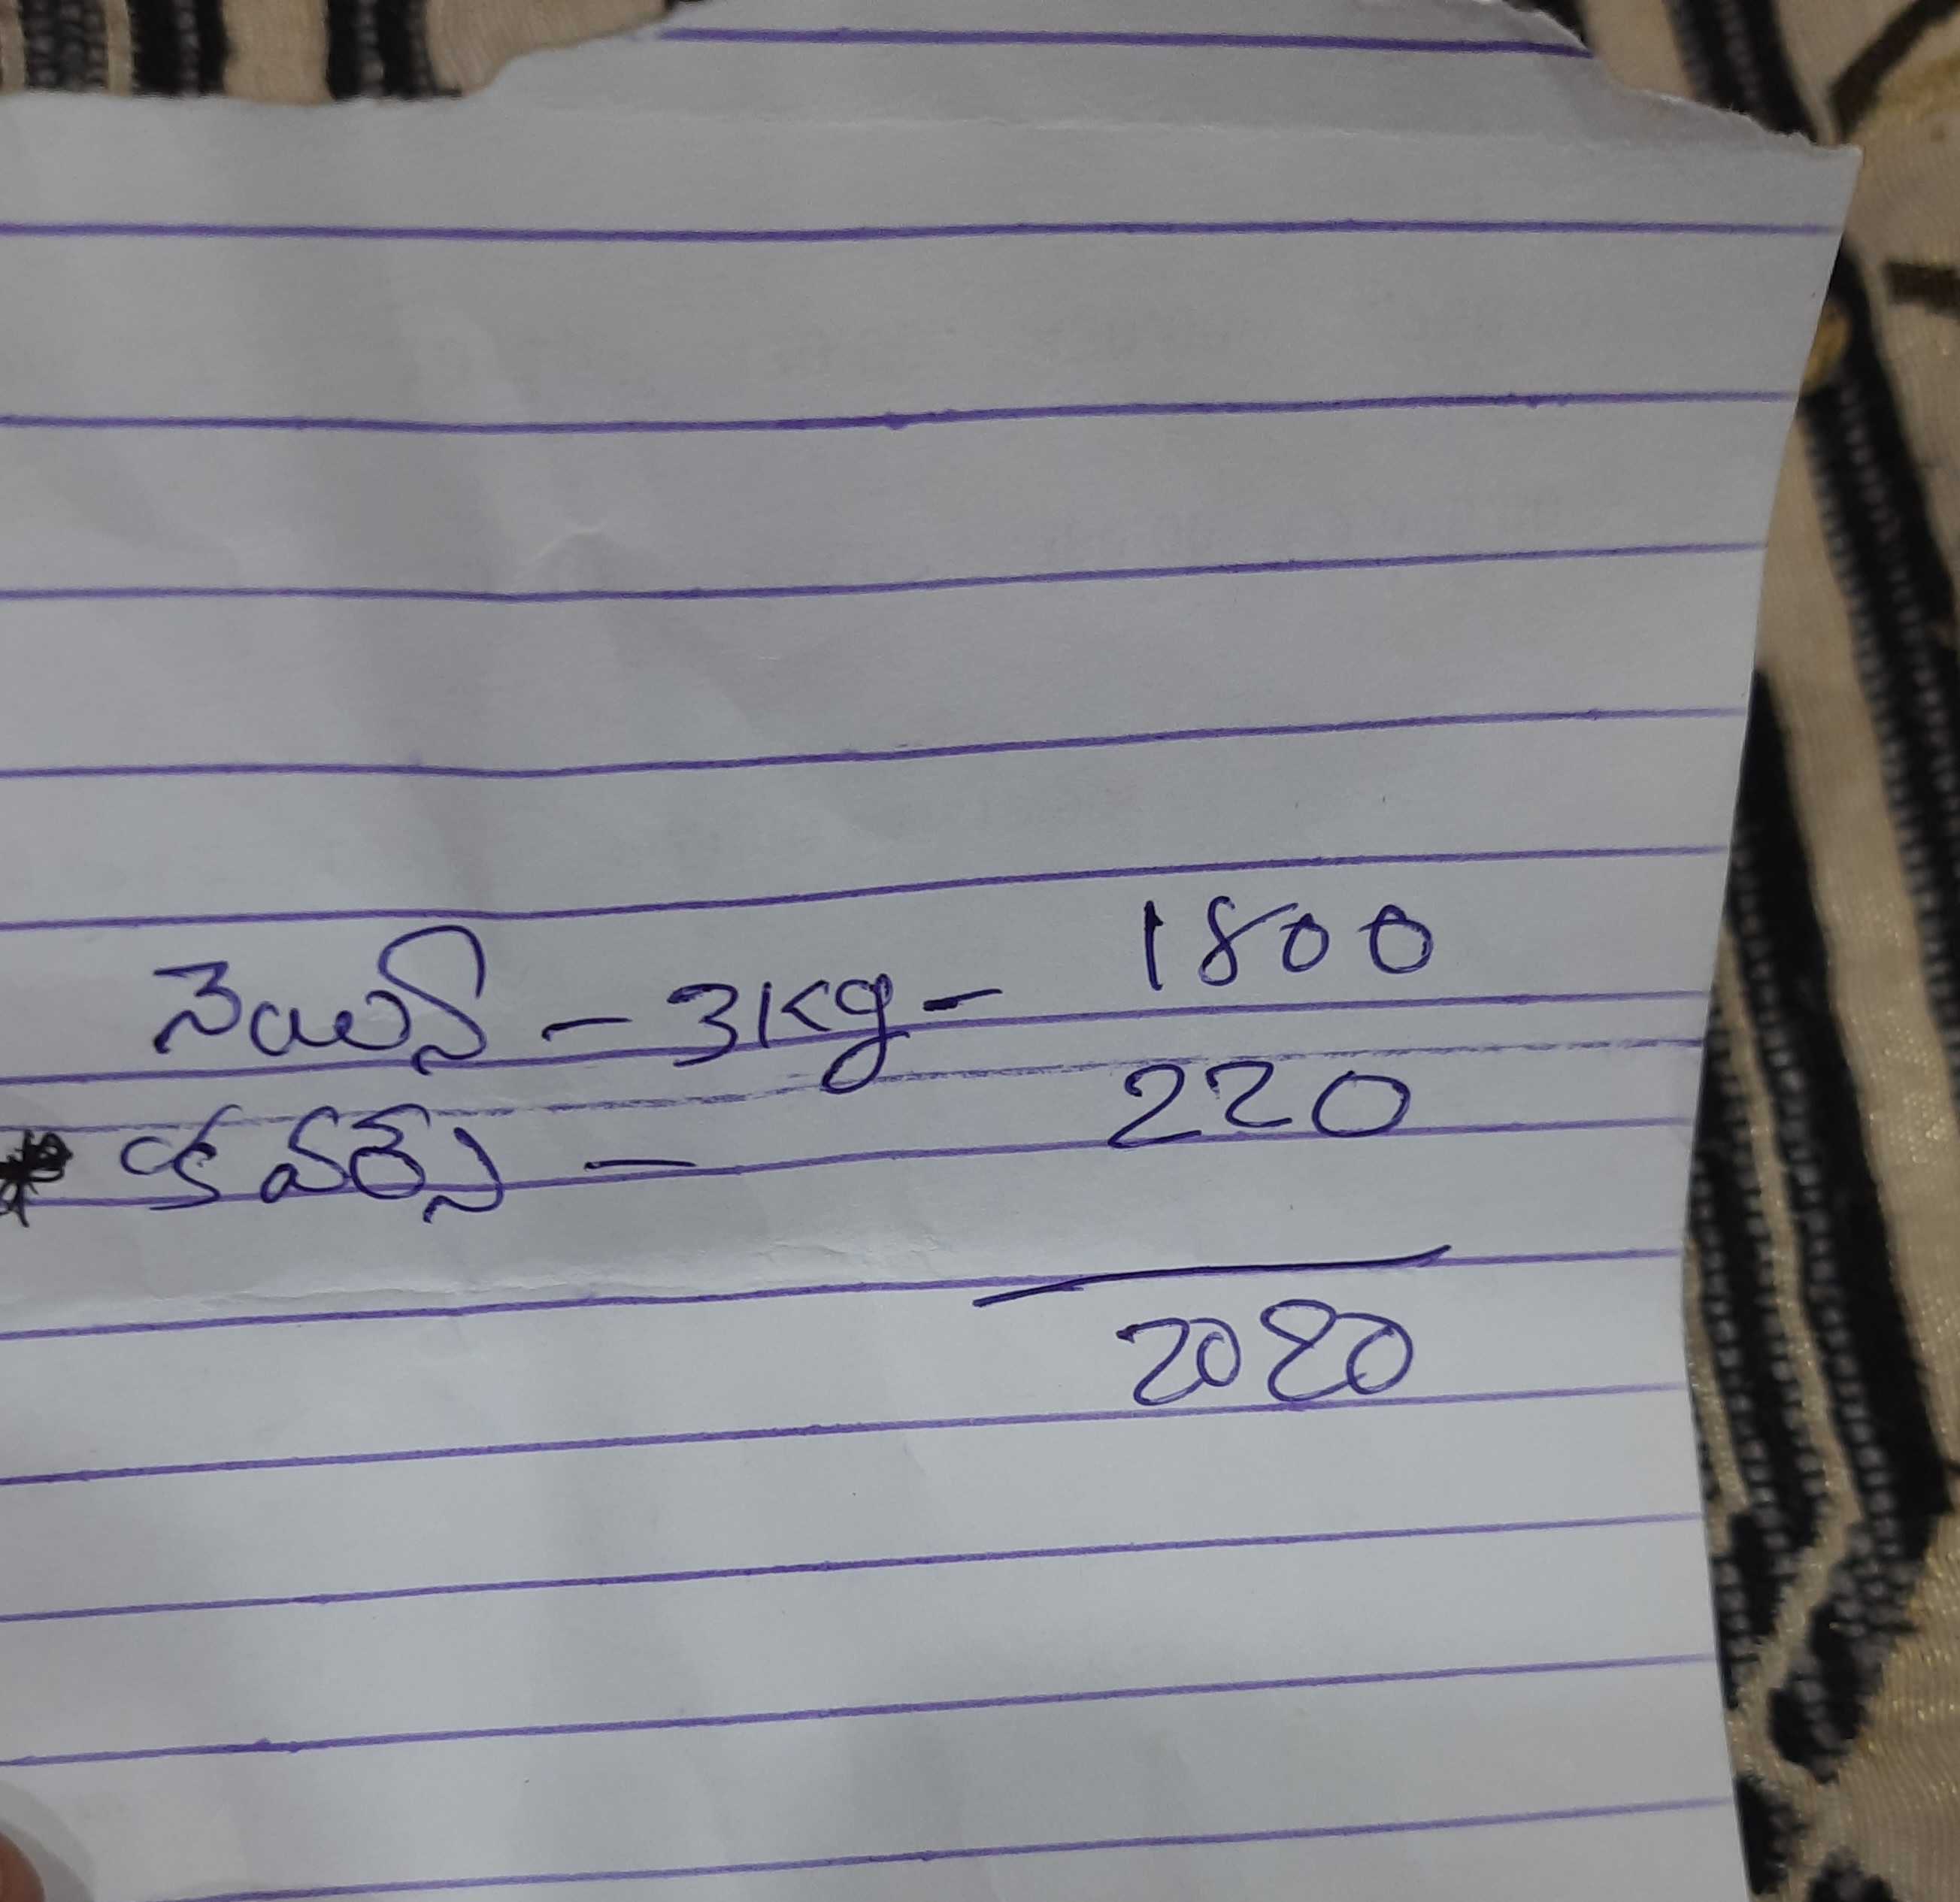 నెయిల్ - 3Kg - 1800
కవర్స్ - 220
2020